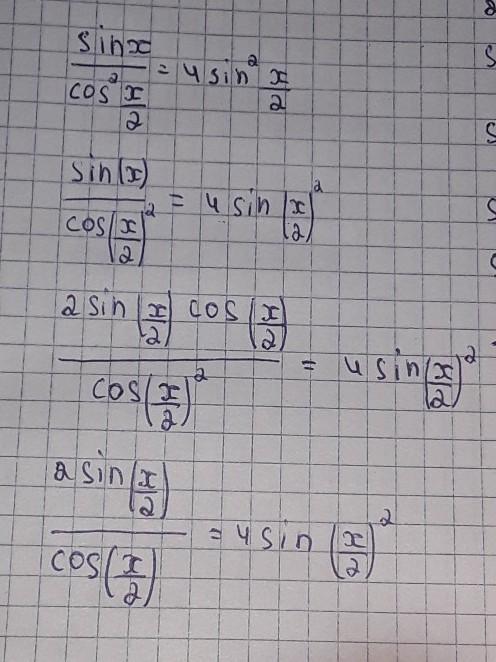 sinx / cos² x/2 = 4 sin² x/2
sin(x) / cos(x/2)² = 4 sin(x/2)²
2 sin(x/2) cos(x/2) / cos(x/2)² = 4 sin(x/2)²
2 sin(x/2) / cos(x/2) = 4 sin (x/2)²